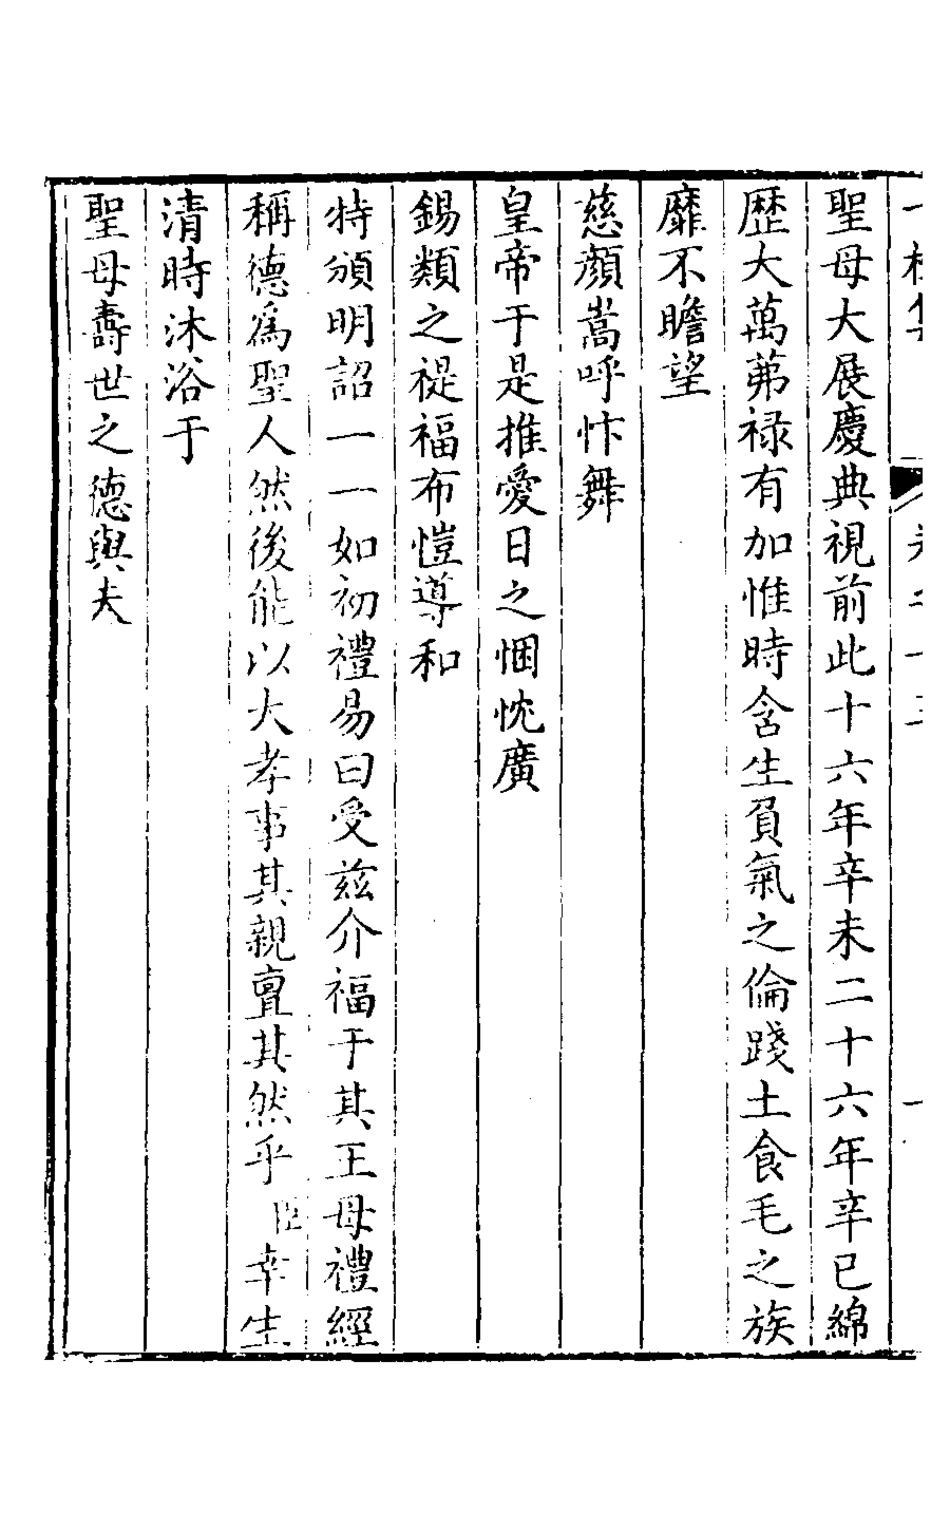 聖母大展慶典視前此十六年辛未二十六年辛巳綿
歴大萬茀禄有加惟時含生負氣之倫踐土食毛之族
靡不瞻望
慈顔嵩呼忭舞
皇帝于是推愛日之悃忱廣
錫類之禔福布愷導和
特頒明詔一一如初禮易曰受兹介福于其王母禮經
稱德爲聖人然後能以大孝事其親亶其然乎臣幸生
清時沐浴于
聖母壽世之德與夫